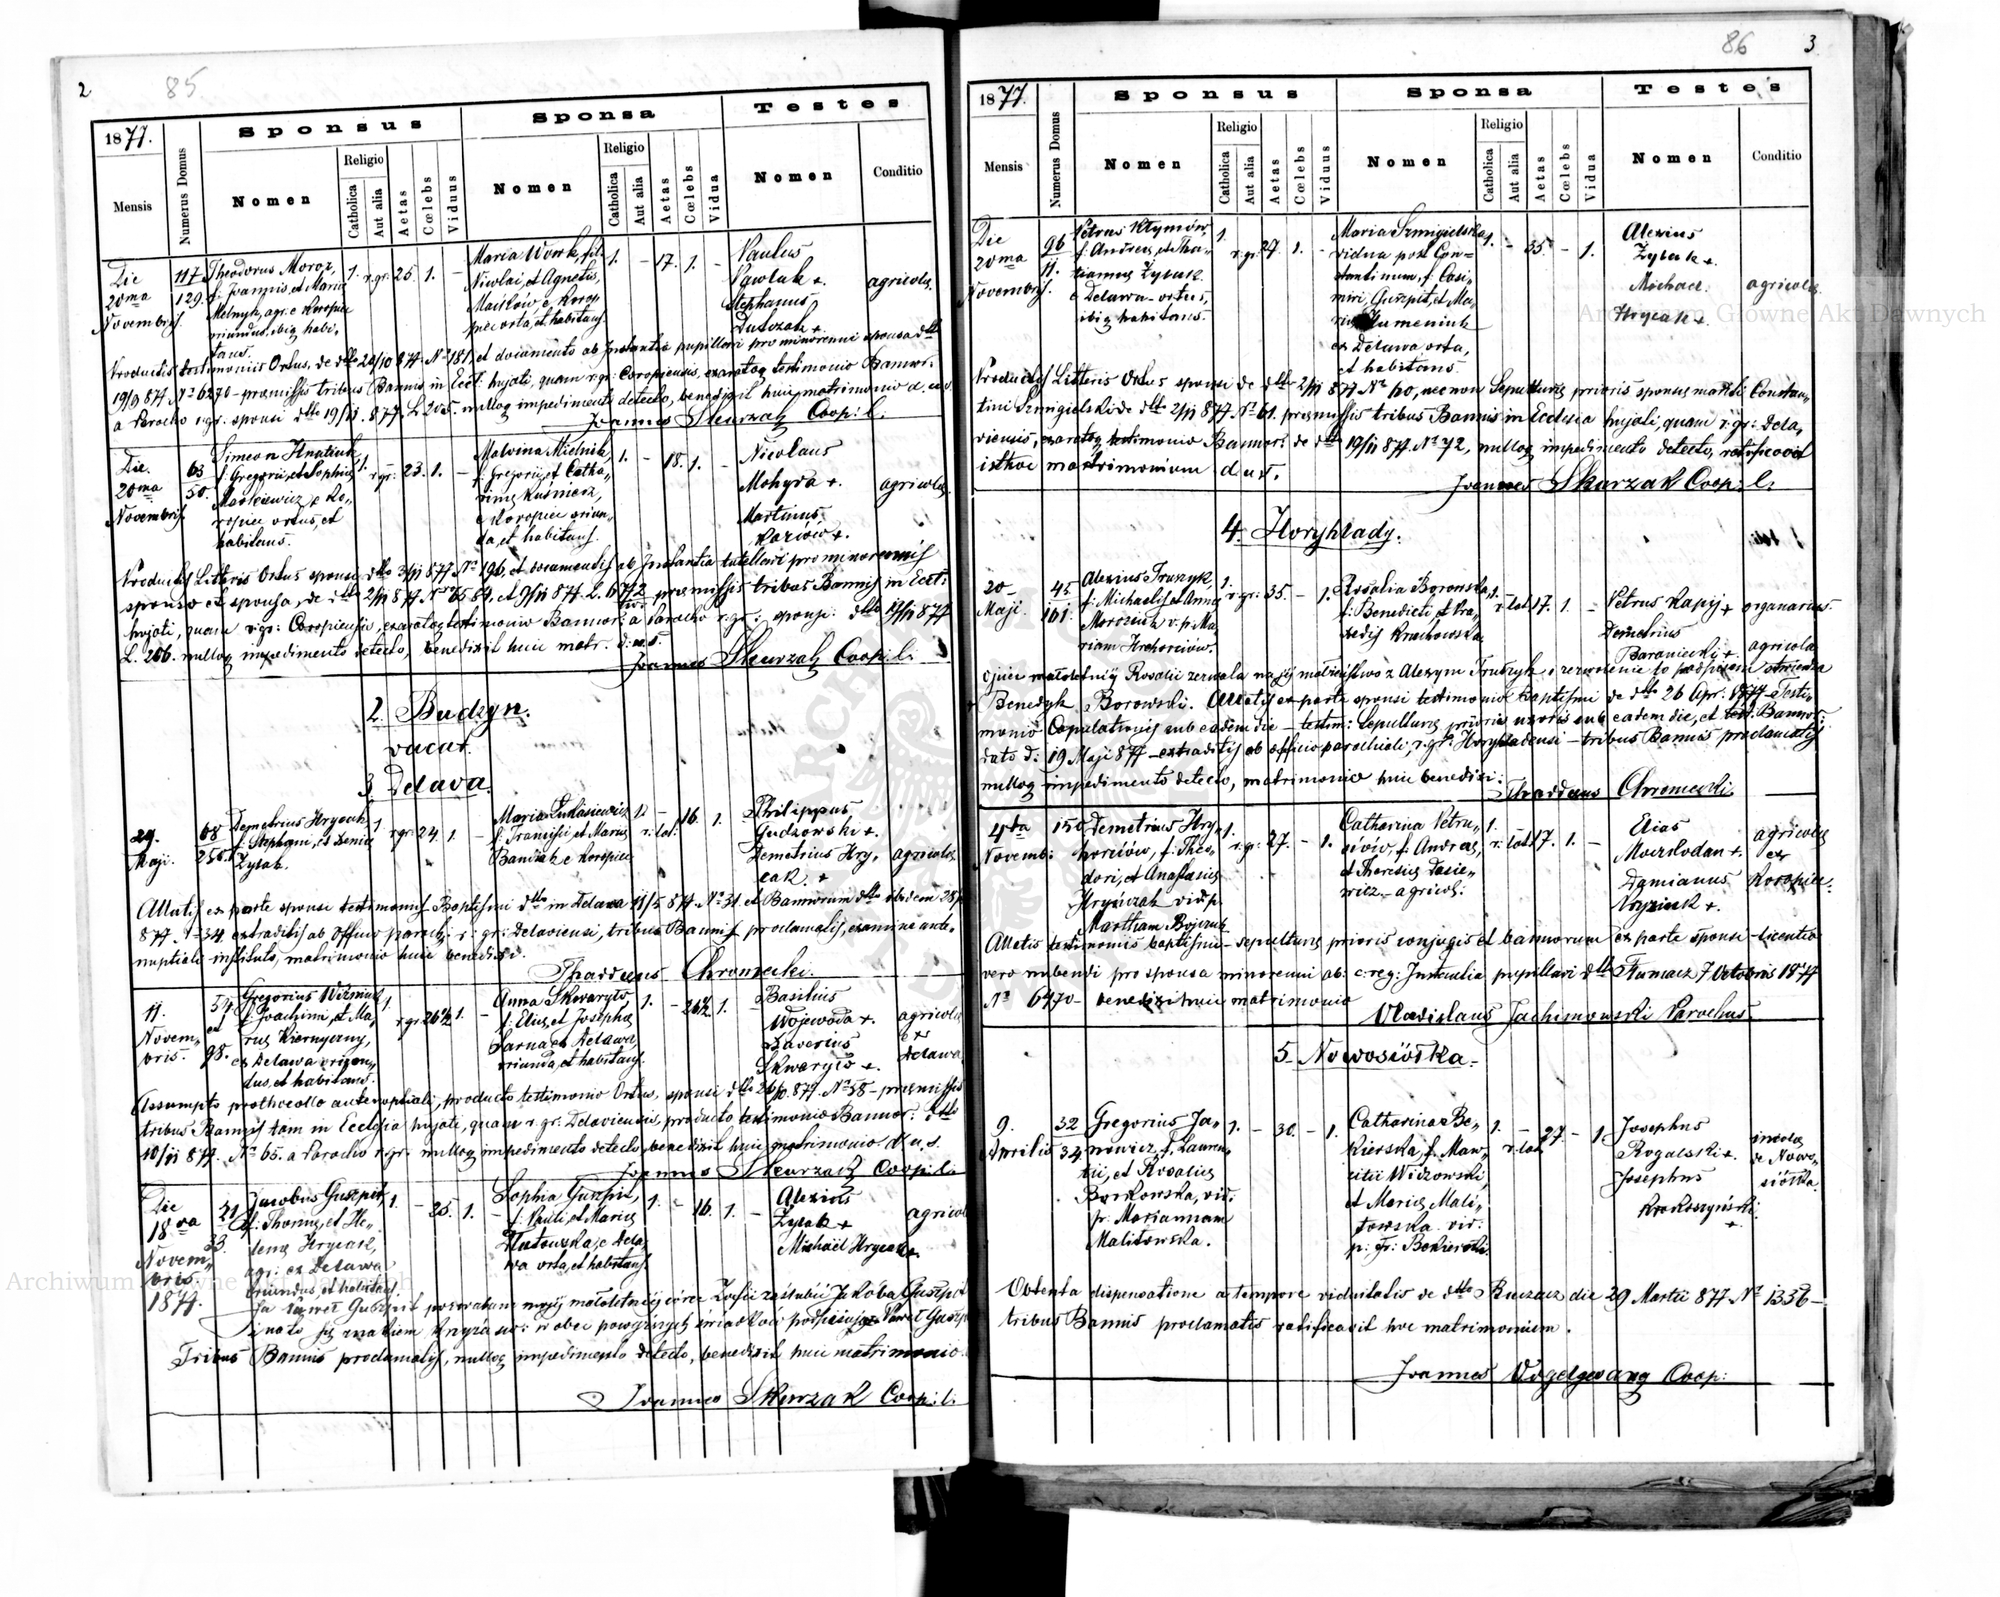 2
85
1877.
Mensis
Numerus Domus
Sponsus
Nomen
Religio
Catholica
Aut alia
Aetas
Cœlebs
Viduus
Sponsa
Nomen
Religio
Catholica
Aut alia
Aetas
Cœlebs
Vidua
Testes
Nomen
Conditio
Die
20ma
Novembris
117
129.
Theodorus Moroz,
f. Joannis, et Maria
Melnyk, agr. e Koropiec
oriundus, ibiq habi,
tans.
1. r.gr. 25. 1. -
Maria Wonk, fil.
Nicolai, et Agnetis,
1. - 17. 1. -
Paulus
Pawluk +.
Stephanus
agricolæ.
Productis testimoniis Ortus, de dtto
et documento ab Instantia pupillari pro minorenni sponsa dtto
præmissis tribus Bannis in Eccl: hujati, quam r.gr. Coropiecensi, exaratoq testimonio Bannor:
a Parocho r.gr. sponsi dtto 19/11. 877. L. 205. nulloq impedimento detecto, benedixit huic matrimonio d. u. s.
Joannes Skurzak Coop: l.
Die.
20ma
Novembris
63
50.
Simeon Hnatiuk,
f. Gregorii, et Sophiæ
Mackiewicz e Ko,
ropiec ortus, et
habitans.
1. r.gr. 23. 1. -
Malvina Mielnik,
f. Gregorii, et Catha,
rinæ Kuśnierz,
e Koropiec oriun,
da, et habitans.
1. - 18. 1. -
Nicolaus
Mohyra +.
Martinus
agricolæ.
Productis Litteris Ortus sponsi dtto 3/11 877 No 196, et documentis ab Instantia tutellari pro minorennis
sponso et sponsa, de dtto
præmissis tribus Bannis in Eccl:
hujati, quam r.gr. Coropiecensi, exaratoq testimonio Bannor: a Parocho r.gr: sponsi dtto 19/11 877
L. 206. nulloq impedimento detecto, benedixit huic matr. d. u. s.
Joannes Skurzak Coop: l.
2. Budzyn.
vacat.
3. Delava.
29.
Maji.
68
256.
Demetrius Hrycak
f. Stephani, et Xeniæ
Zyłak.
1. r.gr. 24. 1. -
Maria Łukasiewicz
f. Francisci, et Mariæ
Bandrak e Koropiec
1. r: lat: - 16. 1.
Philippus
Gudzowski +.
Demetrius Hry,
cak. +
agricolæ.
Allatis ex parte sponsi testimoniis Baptismi dtto in Delawa 11/5 877. No 31. et Bannorum dtto ibidem
877. No 34. extraditis ab Officio paroch: r: gr: Delaviensi, tribus Bannis proclamatis, examine ante,
nuptiali instituto, matrimonio huic benedixi.
Tharduus Chromecki.
11.
Novem,
bris.
54
et
98.
Gregorius
f. Joachimi, et Ma,
riæ Kiernyczny,
ex Delawa oriun,
dus, et habitans.
1. r.gr. 26½ 1. -
Anna Skwaryło
f. Eliæ, et Josephæ
Sarna ex Delawa,
oriunda, et habitans.
1. - 26½ 1. -
Basilius
Wojewoda +.
Xaverius
Skwaryło +.
agricolæ
ex
Delawa
Assumpto prothocollo antenuptiali, producto testimonio Ortus, sponsi dtto
præmissis
tribus Bannis tam in Ecclesia hujati, quam r.gr. Delaviensi, producto testimonio Bannor: dtto
10/11 877. No 65. a Parocho r.gr. nulloq impedimento detecto, benedixit huic matrimonio d. u. s.
Joannes Skurzak Coop: l.
Die
18va
Novem,
bris
1877.
21
33.
Jacobus Guszpit,
f. Thomæ, et He,
lenæ Hrycak,
agr. ex Delawa
oriundus, et habitans.
1. - 25. 1. -
Sophia Guszpit,
f. Pauli, et Mariæ
e Dela,
wa orta, et habitans
1. - 16. 1. -
Alexius
Zyłak +
Michaël Hrycak +
agricolæ
Ja Paweł Guszpit pozwalam mojij małoletniij córce Zofii zaślubić Jakóba Guszpit
znakiem krzyża sw: wobec powyższych świadków podpisuję Paweł Guszpit
Tribus Bannis proclamatis, nulloq impedimento detecto, benedixit huic matrimonio.
Joannes Skurzak Coop: l.
86
3
1877.
Mensis
Numerus Domus
Sponsus
Nomen
Religio
Catholica
Aut alia
Aetas
Cœlebs
Viduus
Sponsa
Nomen
Religio
Catholica
Aut alia
Aetas
Cœlebs
Vidua
Testes
Nomen
Conditio
Die
20ma
Novembris.
96
11.
Petrus Klymów
f. Andreæ, et Tha,
tiannæ Zyłak
e Delawa ortus,
ibiq habitans.
1. r.gr. 27. 1. -
Maria Szmigielska
vidua post Con,
stantinum, f. Casi,
miri Guszpit, et Ma,
riæ Humeniuk
ex Delawa orta,
et habitans.
1. - 35. - 1.
Alexius
Zyłak +.
Michael
Hrycak +.
agricolæ
Productis Litteris Ortus sponsi de dtto 2/11 877 No 60, nec non Sepulturæ prioris sponsæ mariti Constan,
tini Szmigielski de dtto 2/11 877. No 61. præmissis tribus Bannis in Ecclesia hujati, quam r.gr: Dela,
viensi, exaratoq testimonio Bannor: de dtto 19/11 877. No 72, nulloq impedimento detecto, ratificavit
isthoc matrimonium d. u. s.
Joannes Skurzak Coop: l.
4. Horyhlady.
20
Maji
45
101.
Alexius Truszyk,
f. Michaelis et Annæ
Morozuk v. p. Ma,
riam Hrehorciów.
1. r.gr: 35. - 1.
Rosalia Borowska,
f: Benedicti et Pra,
xedis Krachowska
1. r: lat. 17. 1. -
Petrus Kapij +
organarius.
Demetrius
Baraniecki +.
agricola
Ojciec małoletniij Rosalii zezwala na jij małżeństwo z Alexym Truszyk i zezwolenie to podpisem stwierdza
+ Benedyk Borowski. Allatis ex parte sponsi testimonio baptismi de dtto 26 Apr. 1877 - Testi,
monio Copulationis sub eadem die - testim: Sepulturæ prioris uxoris sub eadem die, et test: Bannor:
dato d: 19 Maji 877 - extraditis ab officio parochiali, r.gr: Horyhladensi - tribus Bannis proclamatis
nulloq impedimento detecto, matrimonio huic benedixi.
Tharduus Chromecki.
4ta
Novemb:
150
Demetrius Hry,
horciów, f: Theo,
dori, et Anastasiæ
Hryńczak vid. p.
Martham Bojczuk
1. r.gr: 27. - 1.
Catharina Petru,
siów, f: Andreæ,
et Theresiæ Dasie,
wicz. - agricol:
1. r: lat 17. 1. -
Elias
Mozołodan +.
Damianus
Kryziuk +.
agricolæ
ex
Koropiec.
Allatis testimoniis baptismi - sepulturæ prioris conjugis et bannorum ex parte sponsi - licentia
vero nubendi pro sponsa minorenni ab: c: reg: Instantia pupillari dtto Tłumacz 7 Octobris 1877
No 6470 - benedixi huic matrimonio
Vladislaus Jachimowski Parochus.
5. Nowosiółka.
9.
Aprilis
32
34
Gregorius Ja,
nowicz, f. Lauren,
tii, et Rosaliæ
Borkowska, vid.
p. Mariannam
Malitowska.
1. - 30. - 1.
Catharina Be,
kierska, f. Mau,
ritii Widzowski,
et Mariæ Mali,
towska vid.
p: Gr: Bekierski.
1. r: lat 27. - 1.
Josephus
Rogalski +.
Josephus
Krokoszyński.
+
incolæ
de Nowo,
siółka.
Obtenta dispensatione a tempore viduitatis de dtto Buczacz die 29 Martii 877 No 1336 -
tribus Bannis proclamatis ratificavit hoc matrimonium.
Joannes Vogelgesang Coop:
Archiwum Główne Akt Dawnych
Archiwum Główne Akt Dawnych